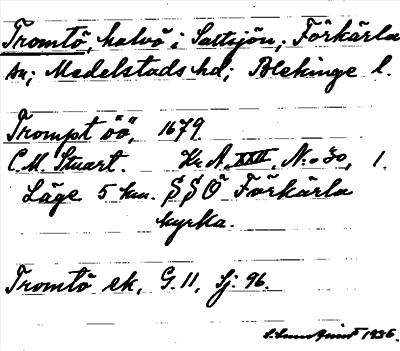 Tromtö, halvö i Saltsjön; Förkärla
sn; Medelstads hd; Blekinge l.
Trompt öö, 1679.
C.M. Stuart. Kr.A. XXII, N:o 30, 1.
Läge 5 km. SSÖ Förkärla
kyrka.
Tromtö ek, G.11, Sj: 96.
1936.